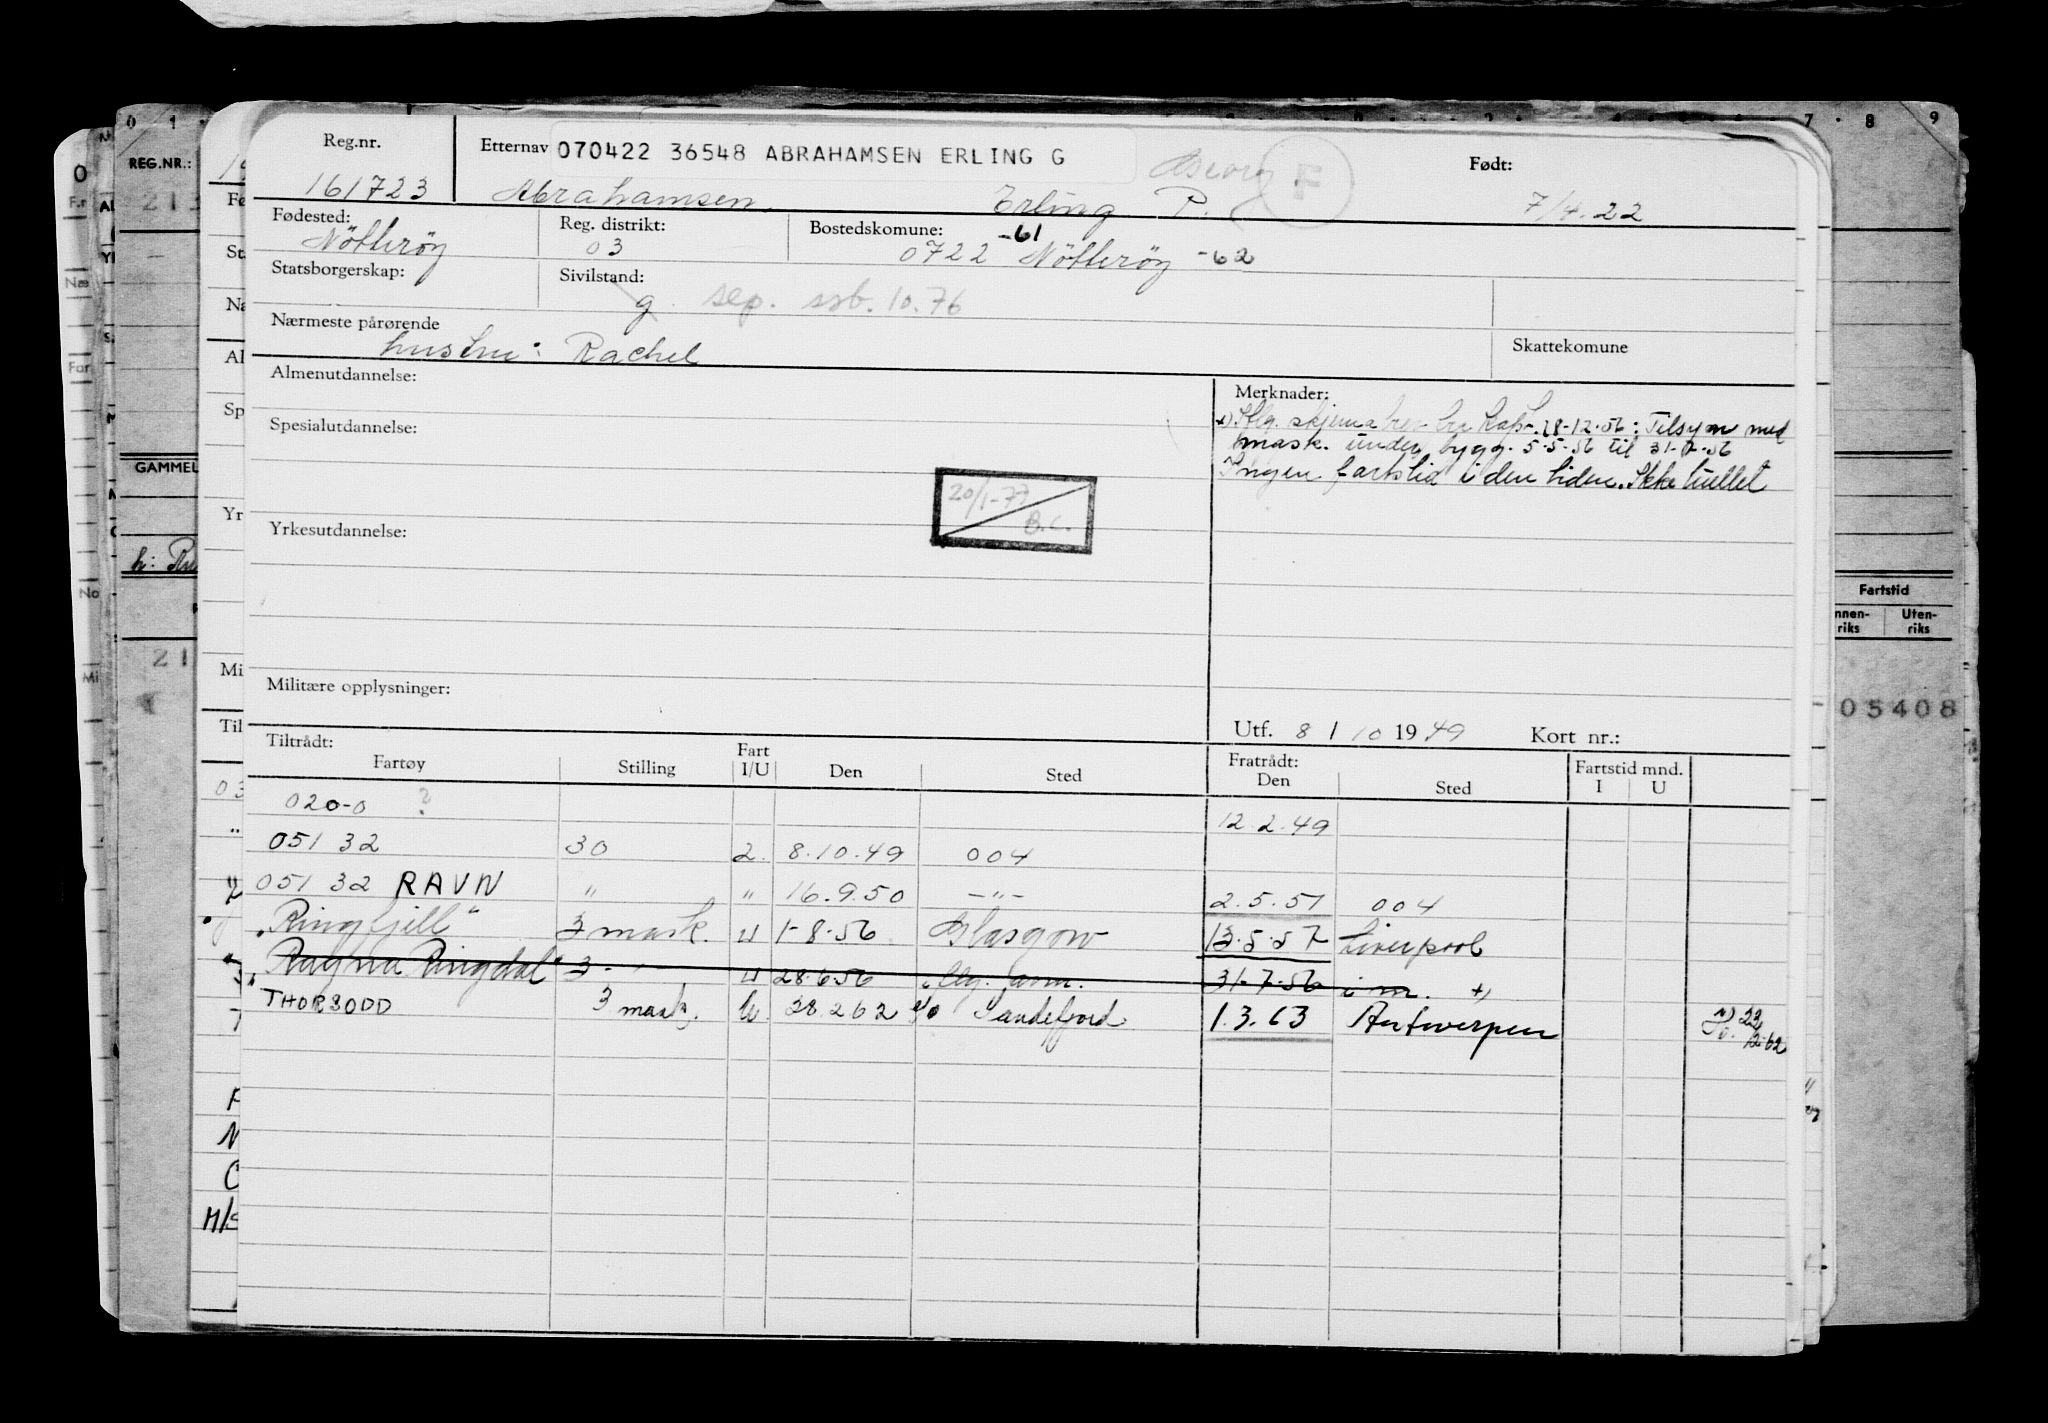 Reg.nr.
161723
Etternavn 070422 36548 ABRAHAMSEN ERLING G
Georg F
Født:
Abrahamsen Erling P. 7/4.22
Fødested: Reg. distrikt: Bostedskomune:
Nötteröy 03 0722 -61 Nötteröy -62
Statsborgerskap: Sivilstand:
g sep. ssb. 10.76
Nærmeste pårørende
hustru: Rachel
Skattekomune
Almenutdannelse:
Merknader:
Spesialutdannelse:
28-12-56: Tilsyn med
mask. under bygg. 5-5-56 til 31-7-56
Ingen fartstid i den tiden. Ikke tullet
20/1-77
B.C.
Yrkesutdannelse:
Militære opplysninger:
Utf. 8 / 10 1949 Kort nr.:
Tiltrådt: Fratrådt: Fartstid mnd.
Fartøy Stilling Fart I/U Den Sted Den Sted I U
020-0 ? 12.2.49
051 32 30 2. 8.10.49 004
051 32 RAVN " " 16.9.50 -"- 2.5.51 004
"Ringfjell" 3 mask. U 1-8-56 Glasgow 13.5.57 Liverpool
"Ragna Ringdal" 3 - " - U 28-6-56 31-7-56 i m. +)
THORSODD 3 mask. U. 28.2 62 Sandefjord 1.3.63 Antwerpen
REG.NR.:
GAMMEL
Fartstid
Innen-riks Uten-riks
05408
7 8 9